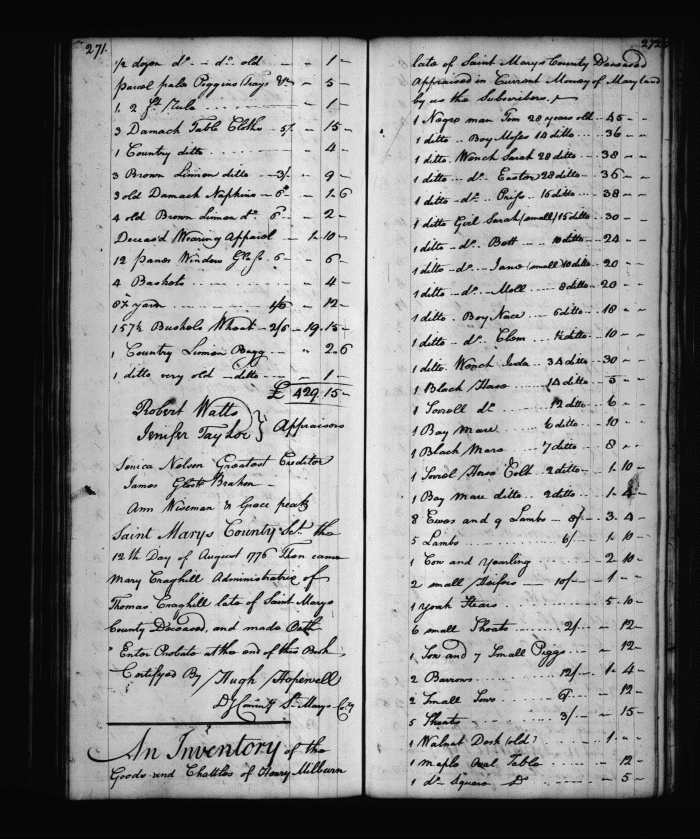 271.
1/2 dozen do - do old - - 1 -
parcel pales Piggins Trays &c - - 5 -
1. 2 ft Rule - - 1 -
3 Damack Table Cloths - 5/. - 15 -
1 Country ditto - - 4 -
3 Brown Linnen ditto - 3/. - 9 -
3 old Damack Napkins - 6d - 1. 6
4 old Brown Linnen do 6 - - 2 -
Deceas'd Wearing Apparel - 1. 10 -
12 panes Window Glass. 6 - - 6 -
4 Baskets - - 4 -
yarn 1/6 - 12 -
157½ Bushels Wheat - 2/6 - 19. 15 -
1 Country Linnen Bagg - " 2. 6
1 ditto very old - ditto - - 1 -
£ 429 15 -
Robert Watts
Jenifer Taylor } Appraisors
Senica Nelson Greatest Creditor
James
Ann Wiseman & Grace
Saint Marys County Sct. the
12th Day of August 1776 Then came
Mary Craghill Administratrix of
Thomas Craghill late of Saint Marys
County Deceased, and made Oath
Enter Probate at the end of this Book
Certifyed By Hugh Hopewell
Dy Commy St Marys Coty
An Inventory of the
Goods and Chattles of Henry Milburn
272
late of Saint Marys County Deceased
Appraised in Current Money of Maryland
by us the Subscribers.
1 Negro man Tom 28 years old - 45 - -
1 ditto Boy Moses 14 ditto - 36 - -
1 ditto Wench Sarah 28 ditto - 38 - -
1 ditto do Easter 28 ditto - 36 - -
1 ditto - do Priss 16 ditto - 38 - -
1 ditto Girl Sarah (small) 15 ditto - 30 - -
1 ditto - do Bett 10 ditto - 24 - -
1 ditto - do Jane (small) 10 ditto - 20 - -
1 ditto - do Moll 8 ditto - 20 - -
1 ditto Boy Nace 6 ditto - 18 - -
1 ditto - do Clem ditto - 10 - -
1 ditto Wench Juda 34 ditto - 30 - -
1 Black Horse 14 ditto - 5 - -
1 Sorrell do 12 ditto - 6 - -
1 Bay Mare 6 ditto - 10 - -
1 Black Mare 7 ditto - 8 - -
1 Sorrel Horse Colt 2 ditto - 1. 10 -
1 Bay Mare ditto 2 ditto - 1. 4 -
8 Ewes and 9 Lambs - 8/ - 3. 4 -
5 Lambs 6/ - 1. 10 -
1 Cow and Yearling - 2 10 -
2 small Heifers - 10/ - 1 - -
1 yoak Stears - 5 10 -
6 small Shoats 2/. - 12 -
1 Sow and 7 Small Piggs - 12 -
2 Barrows 12/ - 1. 4 -
2 Small Sows 6 - 12 -
5 Shoats 3/ - 15 -
1 Walnut Desk (old) 1 - -
1 maple Oval Table - 12 -
1 do Square Do - 5 -